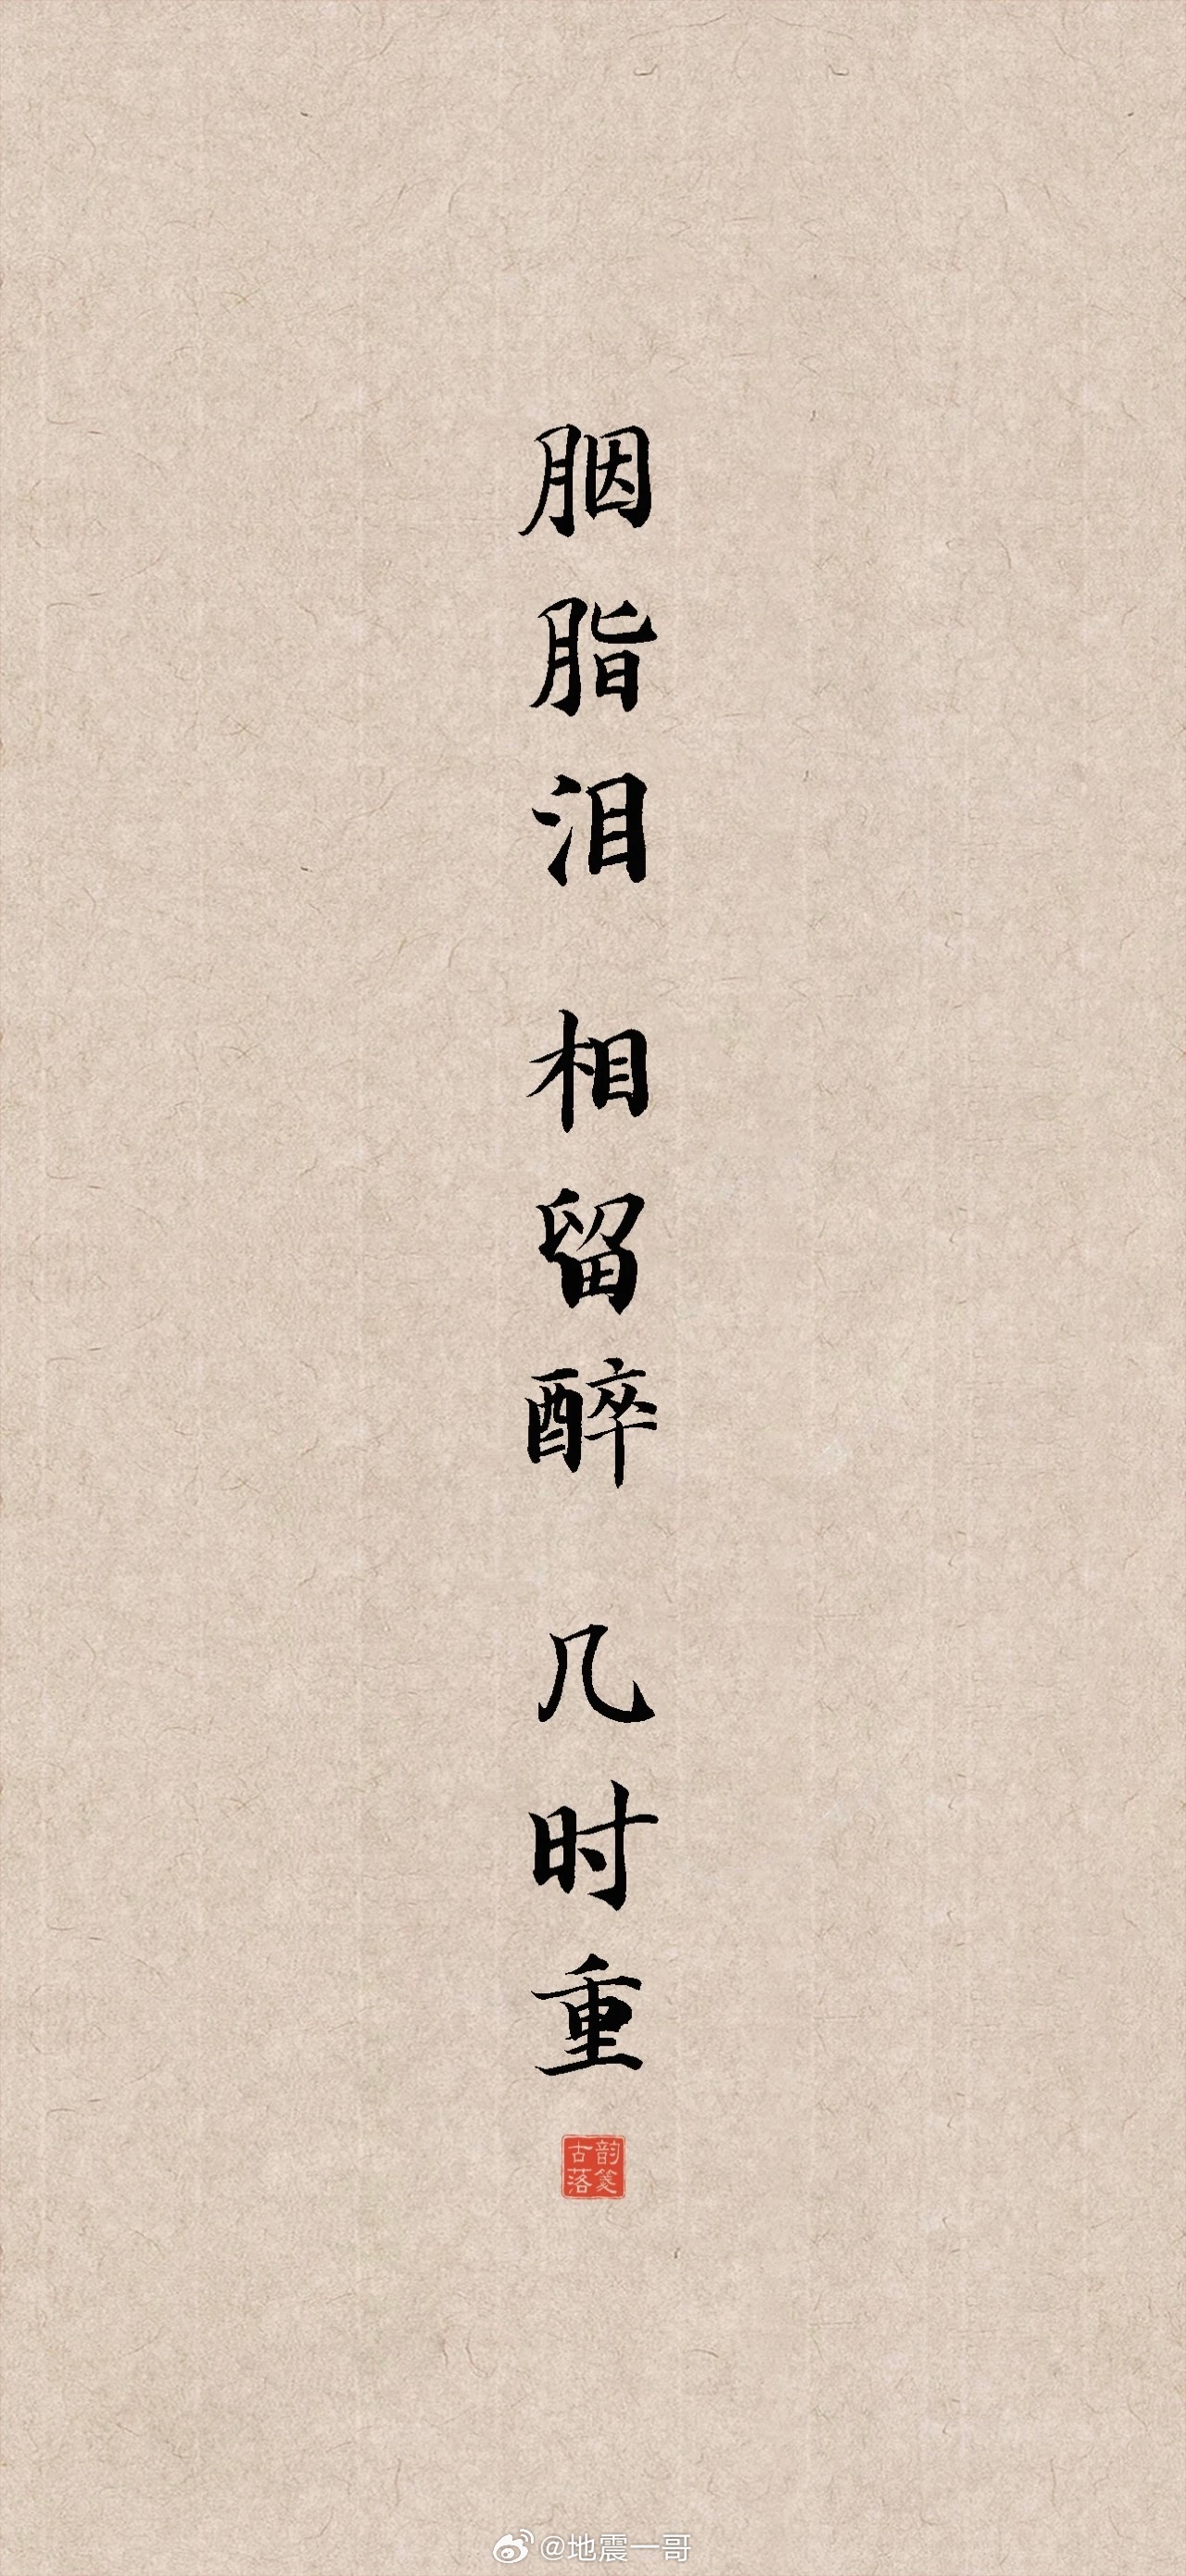 胭脂泪 相留醉 几时重
韵笺
古落
@地震一哥